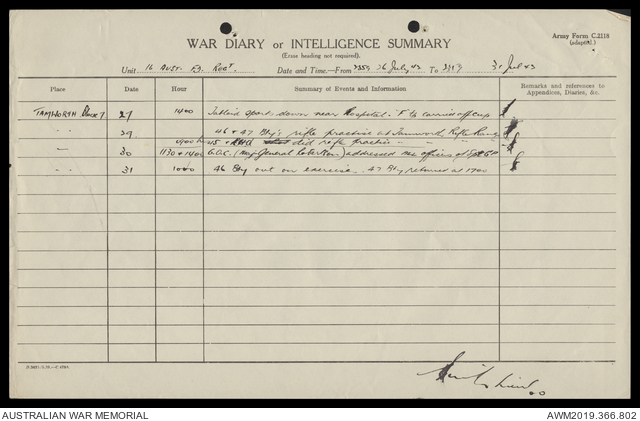 Army Form C.2118
(adapted.)
WAR DIARY or INTELLIGENCE SUMMARY
(Erase heading not required).
Unit 16 AUST. Fd. REGT. Date and Time—From 2359 26 July 43 To 2359 31 Jul 43
Place Date Hour Summary of Events and Information Remarks and references to Appendices, Diaries, &c.
TAMWORTH 27 1400 sports down near Hospital. carried off cup
" 29 46 & 47 Bty's rifle practice at Tamworth Rifle Range
45 & did rifle practice - " " -
" 30 1130 & 1400 G.O.C. (Maj General Robertson) addressed officers at
" 31 1000 46 Bty out on exercise. 47 Bty returned at 1700
AUSTRALIAN WAR MEMORIAL AWM2019.366.802